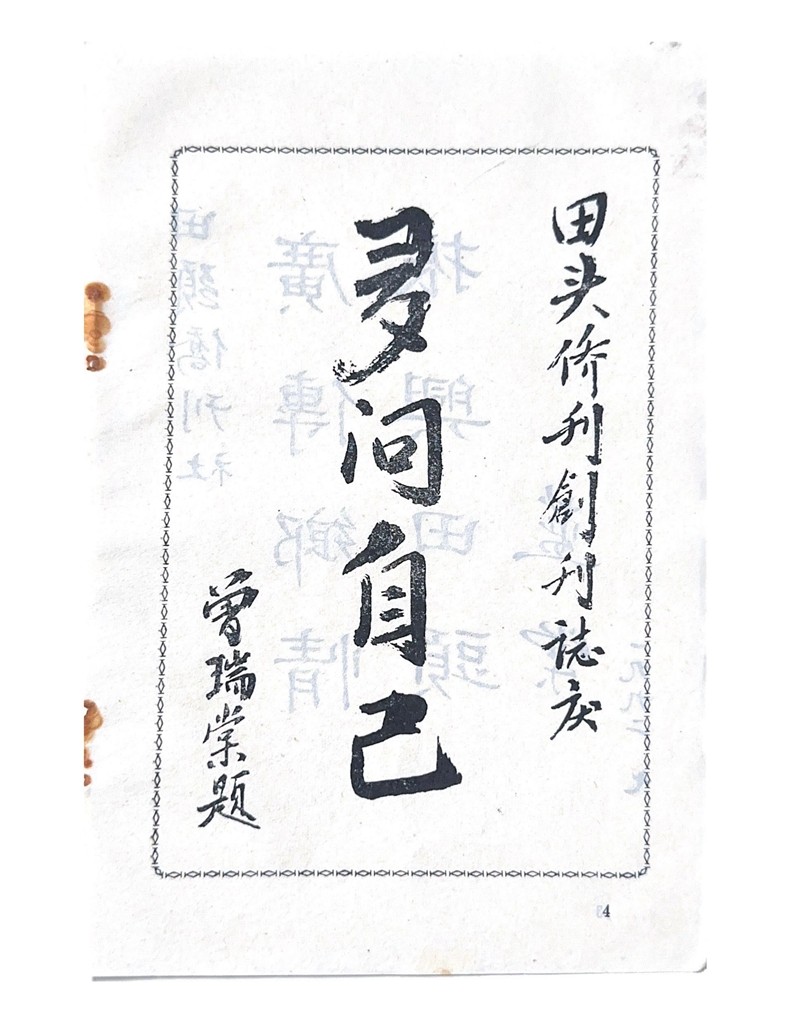 田头侨刊創刊誌庆
多问自己
曾瑞棠题
4